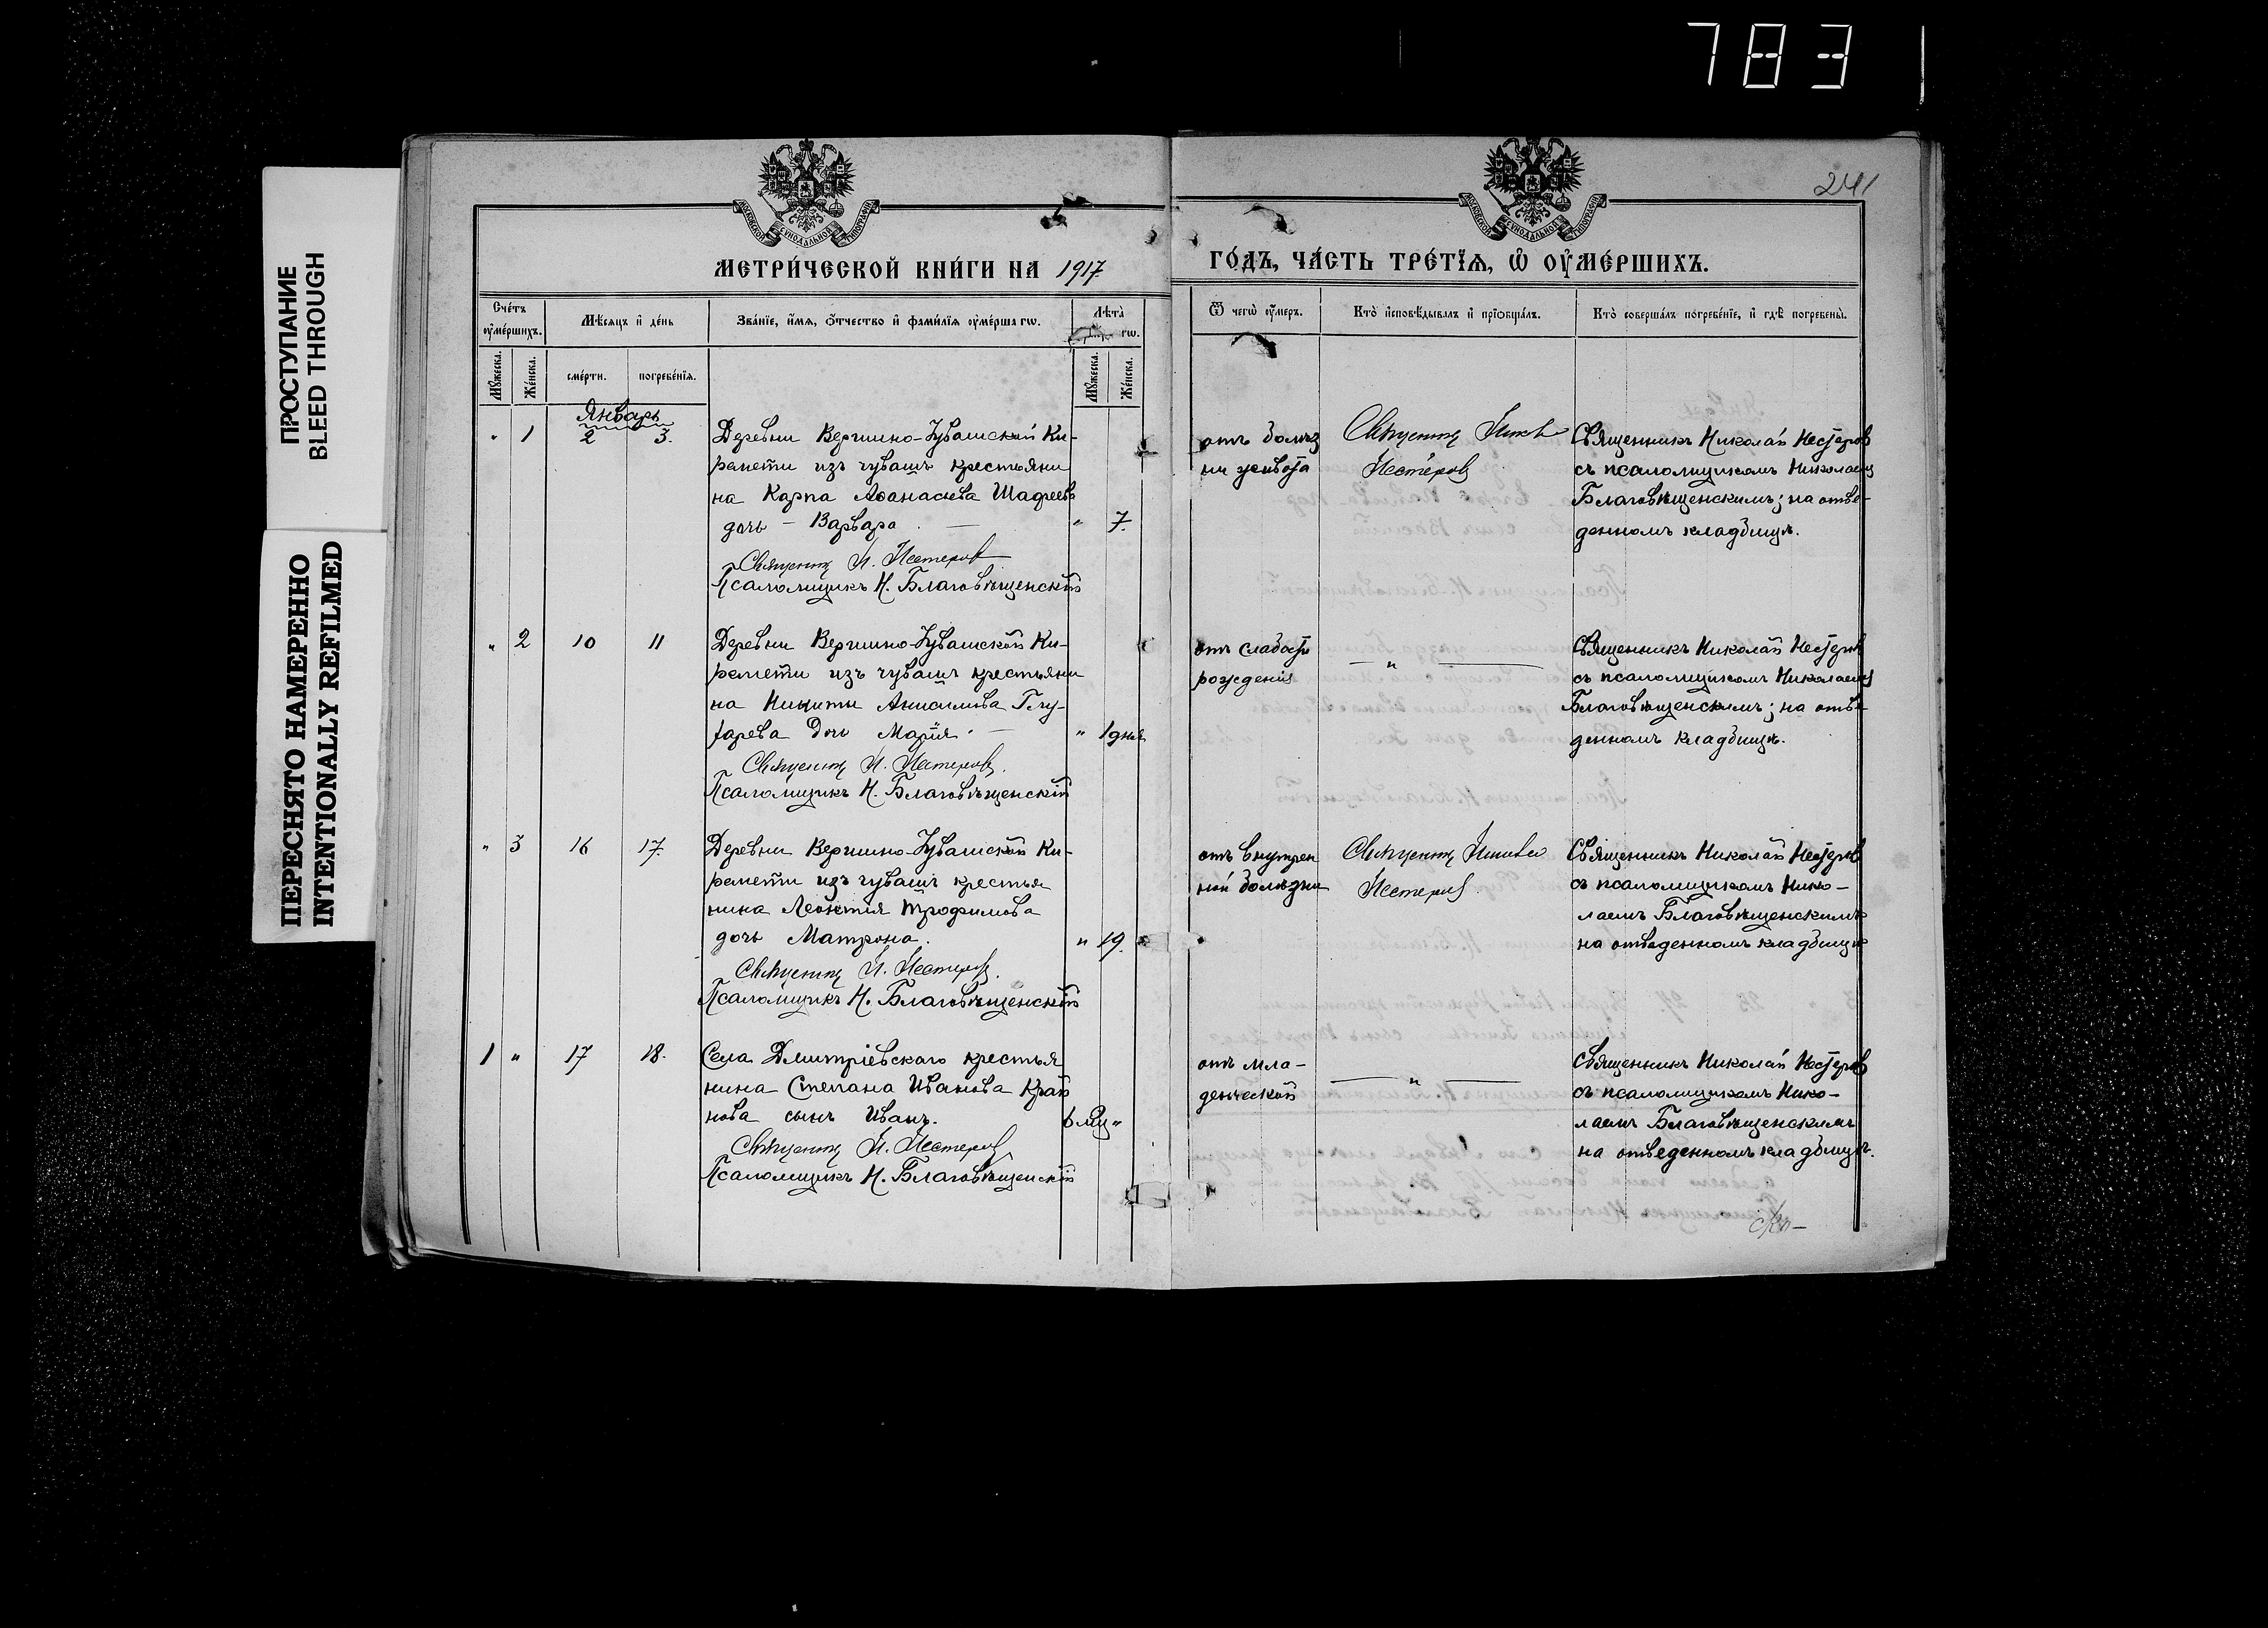 783
ПРОСТУПАНИЕ
BLEED THROUGH
ПЕРЕСНЯТО НАМЕРЕННО
INTENTIONALLY REFILMED
241
МОСКОВСКОЙ СѴНОДАЛЬНОЙ ТИПОГРАФІИ
МОСКОВСКОЙ СѴНОДАЛЬНОЙ ТИПОГРАФІИ
МЕТРИ́ЧЕСКОЙ КНИ́ГИ НА 1917 ГО́ДЪ, ЧА́СТЬ ТРЕ́ТЇѦ, Ѽ ОУ҆МЕ́РШИХЪ.
Сче́тъ оу҆ме́ршихъ.
Мѣ́сяцъ и҆ де́нь
Зва́нїе, и҆́мя, ѻ҆́тчество и҆ фами́лїя оу҆ме́рша гѡ.
Лѣ́та гѡ.
Ѿ чегѡ̀ оу҆́меръ.
Кто̀ и҆сповѣ́дывалъ и҆ прїѻбща́лъ.
Кто̀ соверша́лъ погребе́нїе, и҆ гдѣ̀ погребены̀.
Мꙋ́жеска.
Же́нска.
сме́рти.
погребе́нїя.
Мꙋ́жеска.
Же́нска.
Январь
" 1 2 3.
Деревни Вершино-Чувашской Ки-
ремети изъ чувашъ крестьяни
на Карпа Аѳанасьева Шадреева
дочь - Варвара - " 7.
Священникъ Н. Нестеровъ
Псаломщикъ Н. Благовѣщенскій
отъ болѣз
ни живота
Священникъ
Нестеровъ
Священникъ Николай Нестеровъ
съ псаломщикомъ Николаемъ
Благовѣщенскимъ; на отве-
денномъ кладбищѣ.
" 2 10 11
Деревни Вершино-Чувашской Ки-
ремети изъ чувашъ крестьяни
на Никиты Анисимова Глу-
харева дочь Марія. - " 1 дня
Священникъ Н. Нестеровъ.
Псаломщикъ Н. Благовѣщенскій
отъ слабости
рожденія
— " —
Священникъ Николай Нестеровъ
съ псаломщикомъ Николаемъ
Благовѣщенскимъ; на отве-
денномъ кладбищѣ.
" 3 16 17.
Деревни Вершино-Чувашской Ки-
ремети изъ чувашъ крестья
нина Леонтія Трофимова
дочь Матрона. " 19.
Священникъ Н. Нестеровъ.
Псаломщикъ Н. Благовѣщенскій
отъ внутрен
ней болѣзни
Священникъ
Нестеровъ.
Священникъ Николай Нестеровъ
съ псаломщикомъ Нико-
лаемъ Благовѣщенскимъ
на отведенномъ кладбищѣ
1 " 17 18.
Села Дмитріевскаго крестья
нина Степана Иванова Край
нова сынъ Иванъ. 6 мѣц "
Священникъ Н. Нестеровъ
Псаломщикъ Н. Благовѣщенскій
отъ мла-
денческой
— " —
Священникъ Николай Нестеровъ
съ псаломщикомъ Нико-
лаемъ Благовѣщенскимъ
на отведенномъ кладбищѣ.